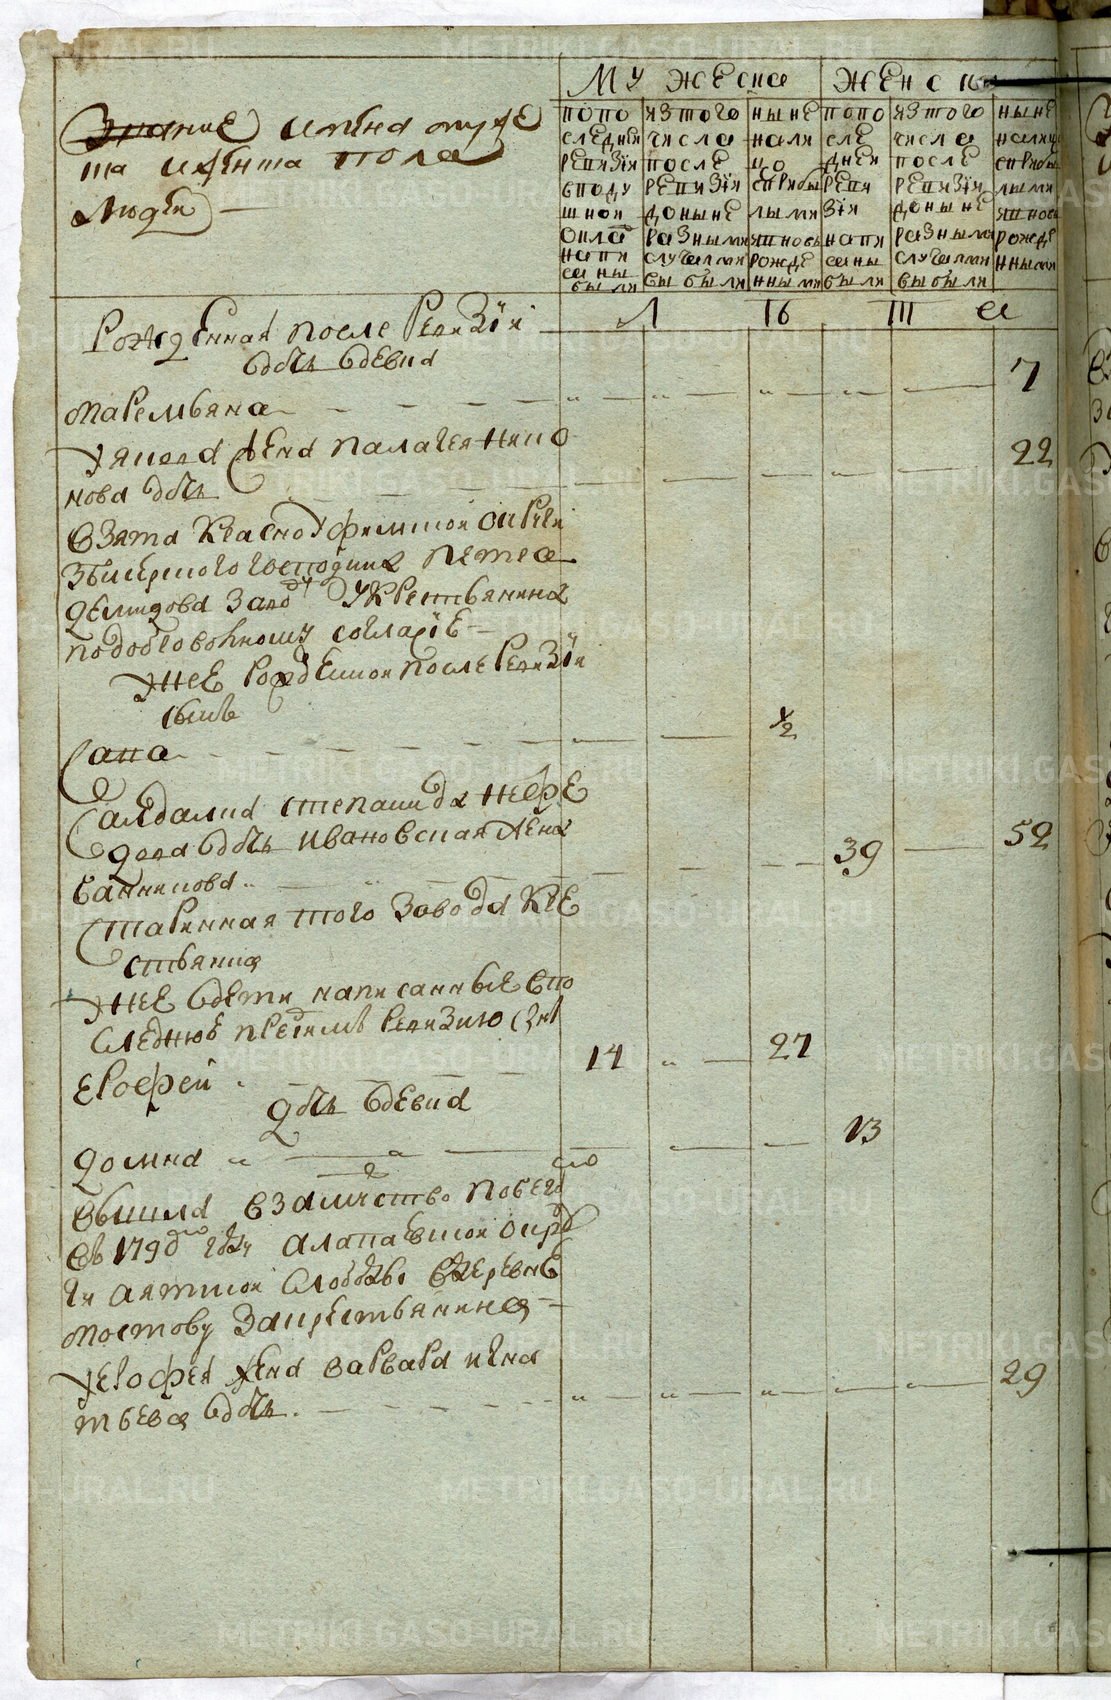 Звание и имена муже
ска и женска пола
людей
мужеска
женска
попо
следней
ревизіи
вподу
шной
окла
напи
саны
были
изтого
числа
после
ревизіи
доныне
разными
случаями
выбыли
ныне
нали
цо
сприбы
лыми
яновь
рожде
нными
попо
сле
дней
реви
зіи
напи
саны
были
изтого
числа
после
ревизіи
доныне
разными
случаями
выбыли
ныне
налиц
сприбы
лыми
яновь
рожде
нными
Рожденная после Ревизіи
дочь девка
Маремьяна 7
у якова жена палагея
нова дочь 22
взята красноуфимской округи
збилимского господина петра
демидова завода у крестьянина
подобровольному согласіе
у нее рожденой после Ревизіи
сынъ
Сава 1/2
Салдатка степанида нефе
дова дочь ивановская жена
банникова 39 52
Старинная того завода кре
стьянка
у нее дети написанные впо
следнюю пред симъ ревизию
ерофей 14 27
дочь девка
домна 13
вышла взамужство
въ 179 году алапаевской округ
и аятской слободы в деревне
мостову за крестьянина
у ерофея жена варвара игна
тьева дочь 29
METRIKI.GASO-URAL.RU